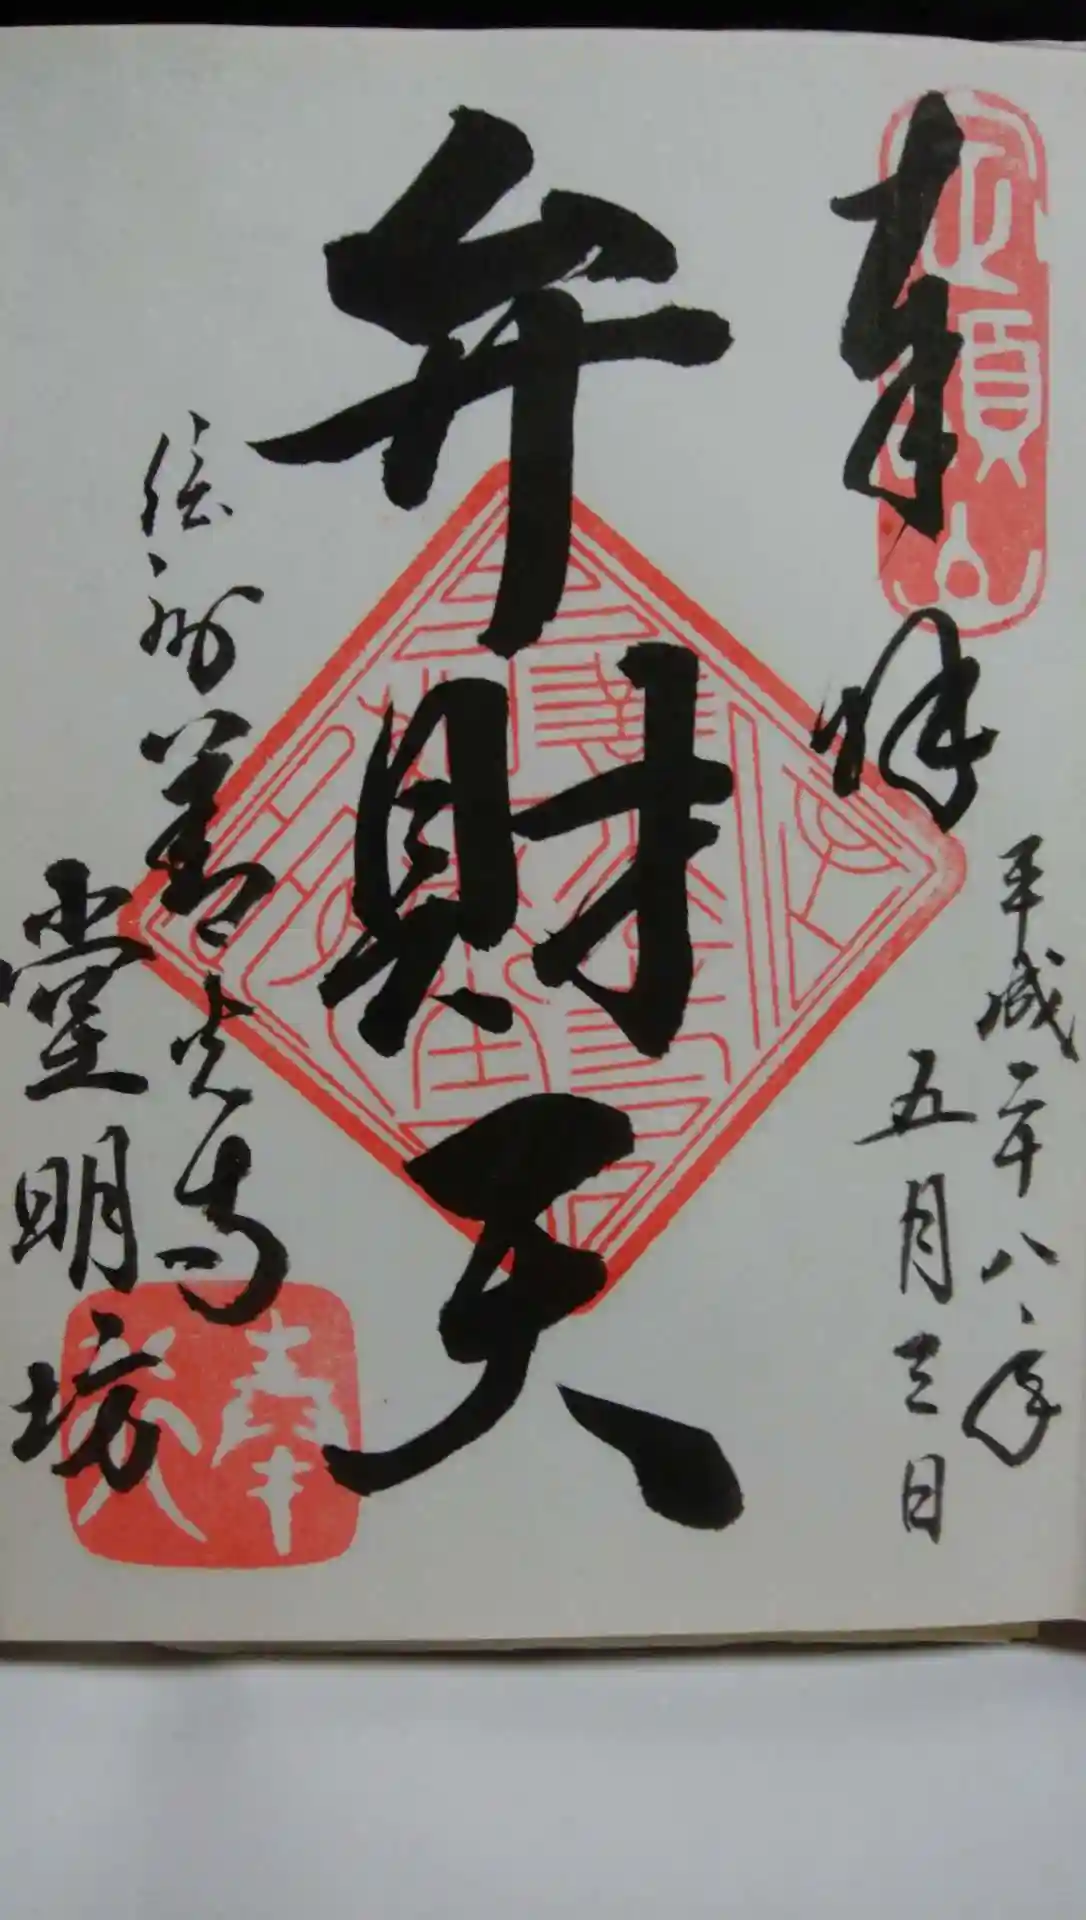 奉拝
平成二十八、年
五月三日
弁財天
信州善光寺
堂明坊